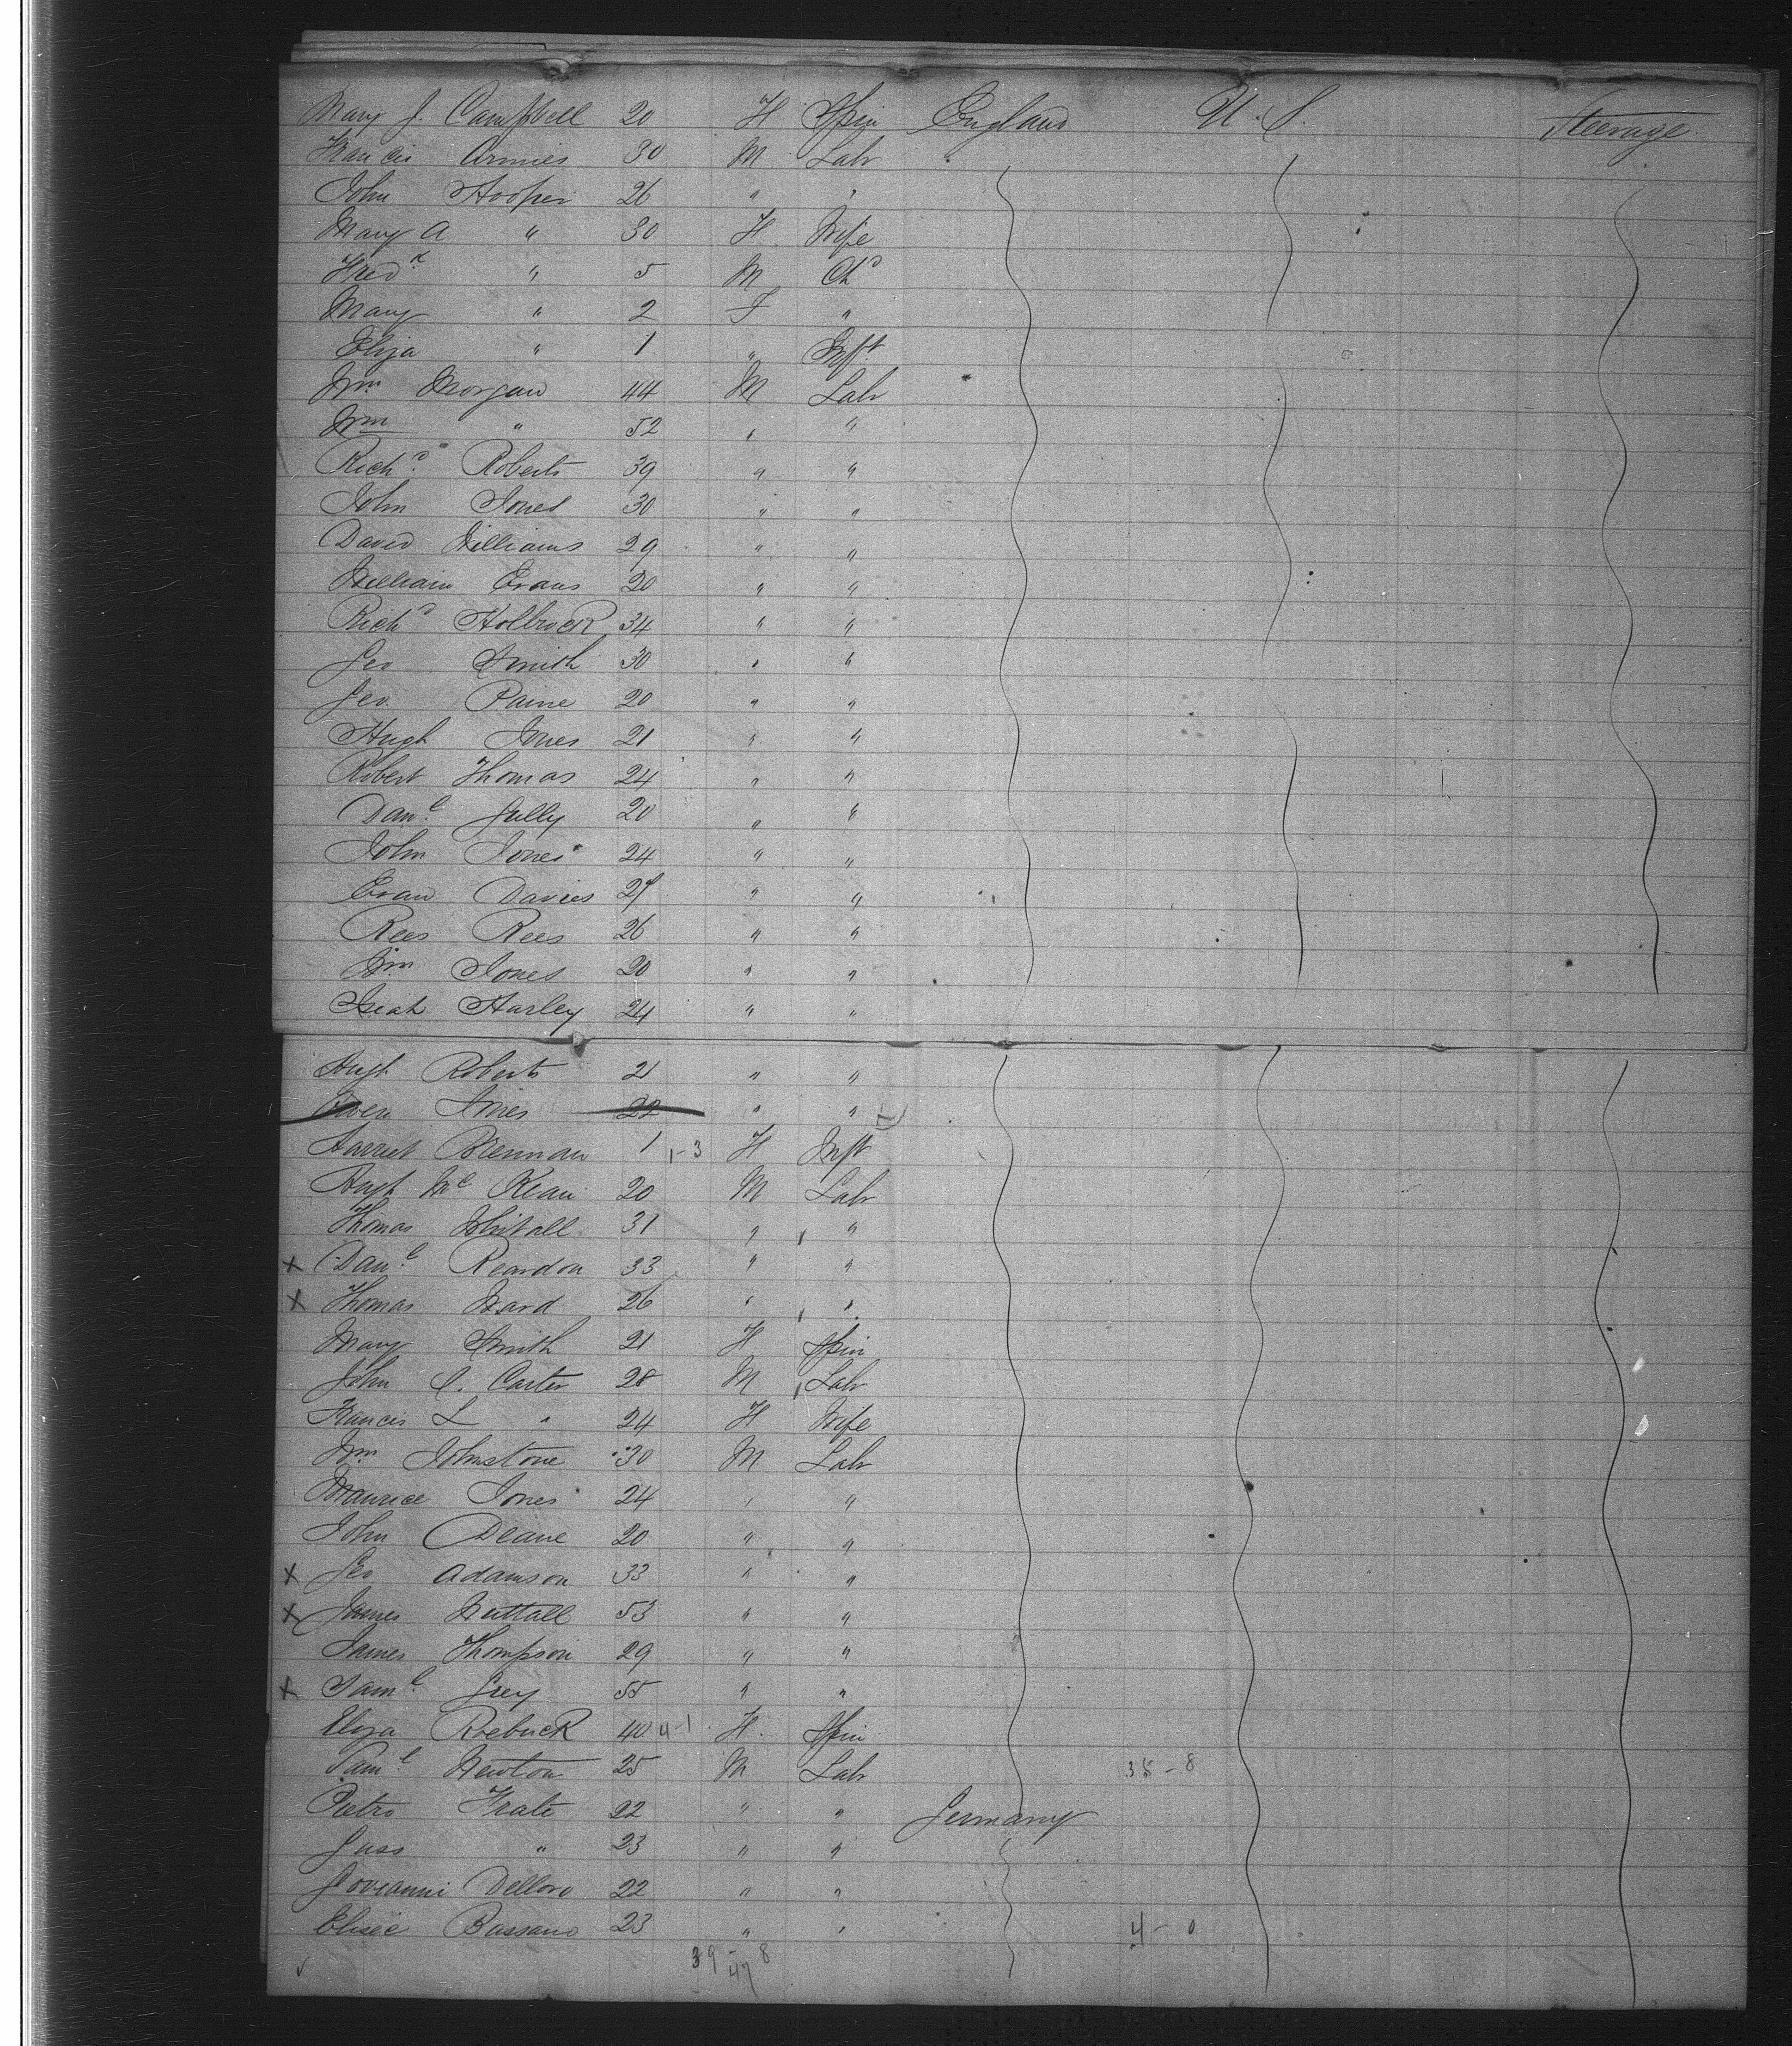 Mary J. Campbell 20 F Spin England U.S. Steerage
Francis Armies 30 M Labr
John Hooper 26 " "
Mary A " 30 F Wife
Fredk " 5 M Chd
Mary " 2 F "
Eliza " 1 " Inft
Wm Morgan 44 M Labr
Wm " 52 " "
Richd Roberts 39 " "
John Jones 30 " "
David Williams 29 " "
William Evans 20 " "
Richd Holbrock 34 " "
Geo Smith 30 " "
Geo. Paine 20 " "
Hugh Jones 21 " "
Robert Thomas 24 " "
Danl Gully 20 " "
John Jones 24 " "
Evan Davies 27 " "
Rees Rees 26 " "
Wm Jones 20 " "
Isiah Harley 24 " "
Hugh Roberts 21 " "
Owen Jones 22 " "
Harriet Brennan 1 1-3 F Inft
Hugh Mc Kean 20 M Labr
Thomas Whitall 31 " "
x Danl Reardon 33 " "
x Thomas Ward 26 " "
Mary Smith 21 F Spin
John C. Carter 28 M Labr
Francis L " 24 F Wife
Wm Johnstone 30 M Labr
Maurice Jones 24 " "
John Deane 20 " "
x Geo Adamson 33 " "
x James Nuttall 53 " "
James Thompson 29 " "
x Saml Grey 55 " "
Eliza Roebuck 40 4-1 F Spin
Saml Newton 25 M Labr 35-8
Pietro Frate 22 " " Germany
Guss " 23 " "
Giovanni Delloro 22 " "
Elisee Bassano 23 " " 4-0
39-8
47